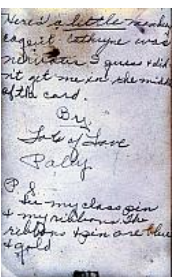 Here's a little
Cathryne was
I guess & did-
n't get me in the middle
of the card.
By
Lots of Love
P.S.
See my class pin
& my ribbons. The
ribbons & pin are blue
& gold